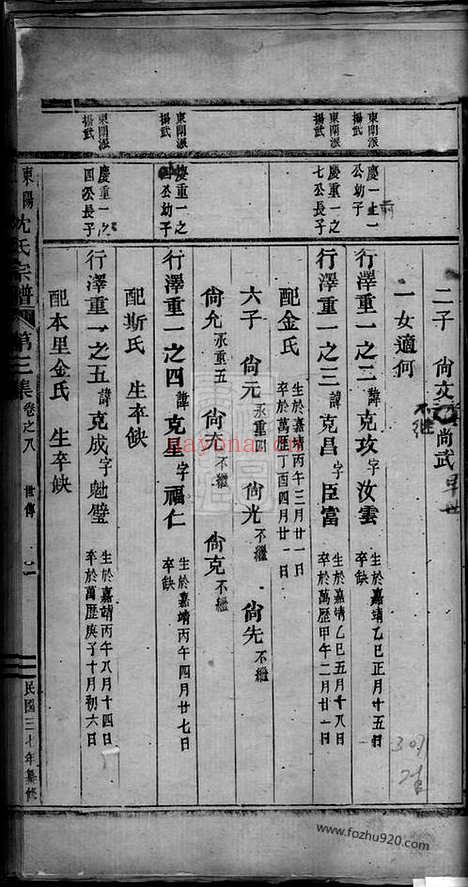 東陽沈氏宗譜 第三集 卷之八 世傳
民國三十年纂修
二子 尙文 尙武 早世
不繼
一女適何
東關派
揚武
慶一
公幼子
行澤重一之二 諱 克攻 字 汝雲
生於嘉靖乙巳正月十五日
東關派
揚武
慶重一之
七公長子
行澤重一之三 諱 克昌 字 臣富
生於嘉靖乙巳五月十八日
卒於萬歷甲午二月廿一日
配金氏
生於嘉靖丙午三月廿一日
卒於萬歷丁酉四月廿一日
六子 尙元 承重四 尙光 不繼 尙先 不繼
尙允 承重五 尙亮 不繼 尙克 不繼
東關派
揚武
慶重一之
四公幼子
行澤重一之四 諱 克星 字 福仁
生於嘉靖丙午四月廿七日
卒缺
配斯氏 生卒缺
東關派
揚武
慶重一之
四公長子
行澤重一之五 諱 克成 字 魁璧
生於嘉靖丙午八月十四日
卒於萬歷庚子十月初六日
配本里金氏 生卒缺
nayona.cn
www.fozhu920.com